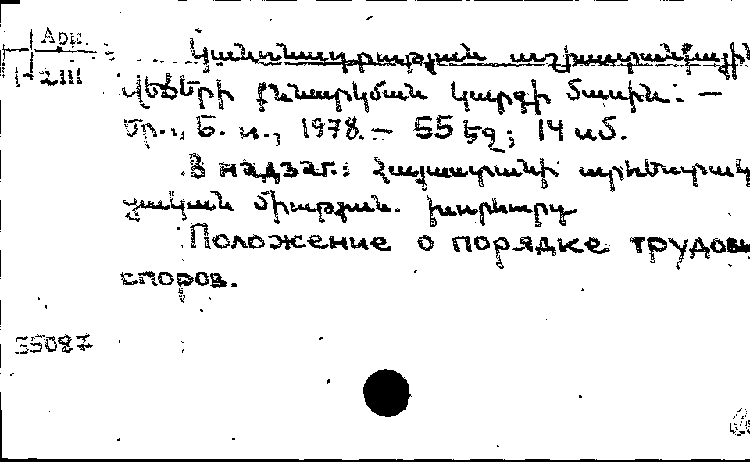 Арм.
1-2111
Կանոնադրություն աշխատանքային
վեճերի քննարկման կարգի մասին: —
Եր., Б. и., 1978. — 55 էջ; 14 սմ.
В надзаг.: Հայաստանի արհեստակ
ցական միություն. խորհուրդ
Положение о порядке трудовы
споров.
55087